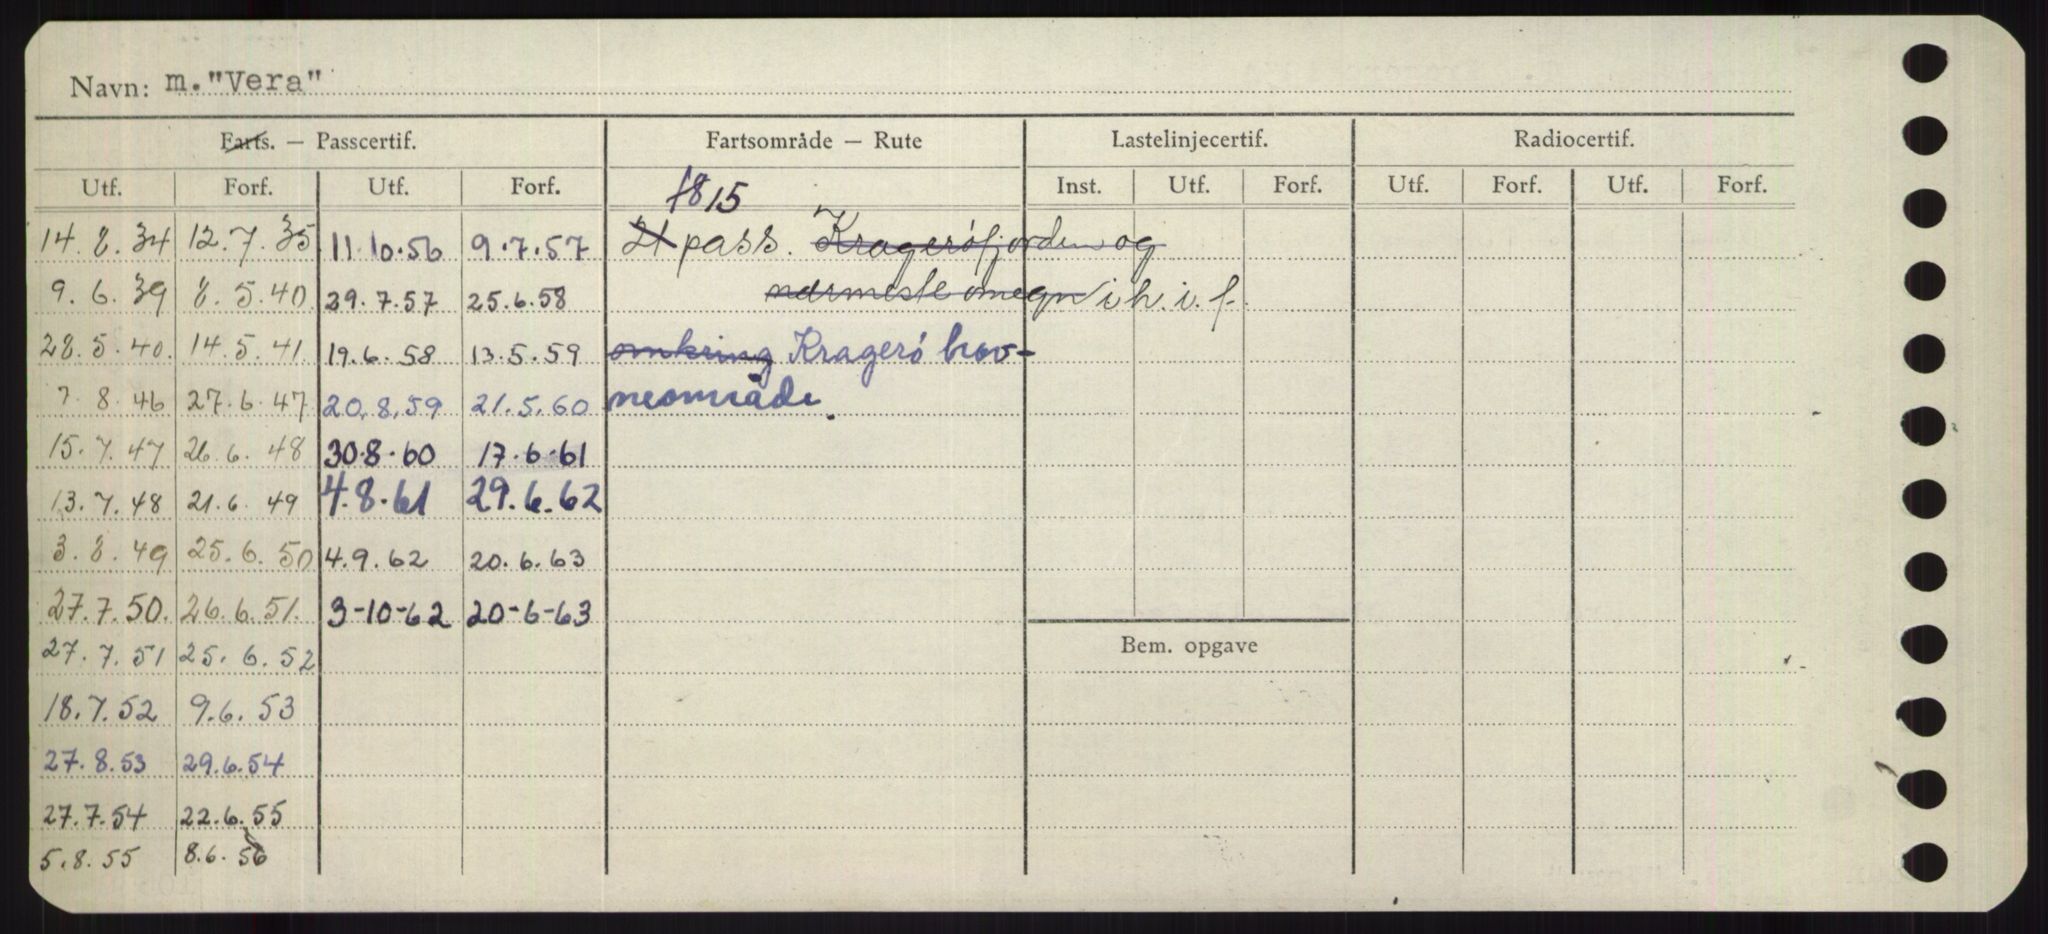 Navn: m. "Vera"
Farts. — Passcertif. Fartsområde — Rute Lastelinjecertif. Radiocertif.
Utf. Forf. Utf. Forf. Inst. Utf. Forf. Utf. Forf. Utf. Forf.
18 15
14.8.34 12.7.35 11.10.56 9.7.57 21 pass. Kragerøfjorden og
9.6.39 8.5.40 29.7.57 25.6.58 nærmeste omegn i h.i.f.
28.5.40. 14.5.41. 19.6.58 13.5.59 omkring Kragerø hav-
7.8.46 27.6.47 20.8.59 21.5.60 neområde.
15.7.47 26.6.48 30.8.60 17.6.61
13.7.48 21.6.49 4.8.61 29.6.62
3.8.49 25.6.50 4.9.62 20.6.63
27.7.50. 26.6.51. 3-10-62 20-6-63
27.7.51 25.6.52 Bem. opgave
18.7.52 9.6.53
27.8.53 29.6.54
27.7.54 22.6.55
5.8.55 8.6.56